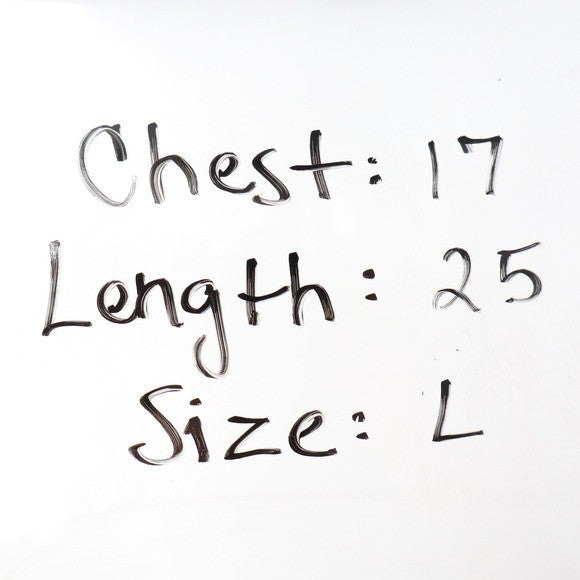 Chest: 17
Length: 25
Size: L